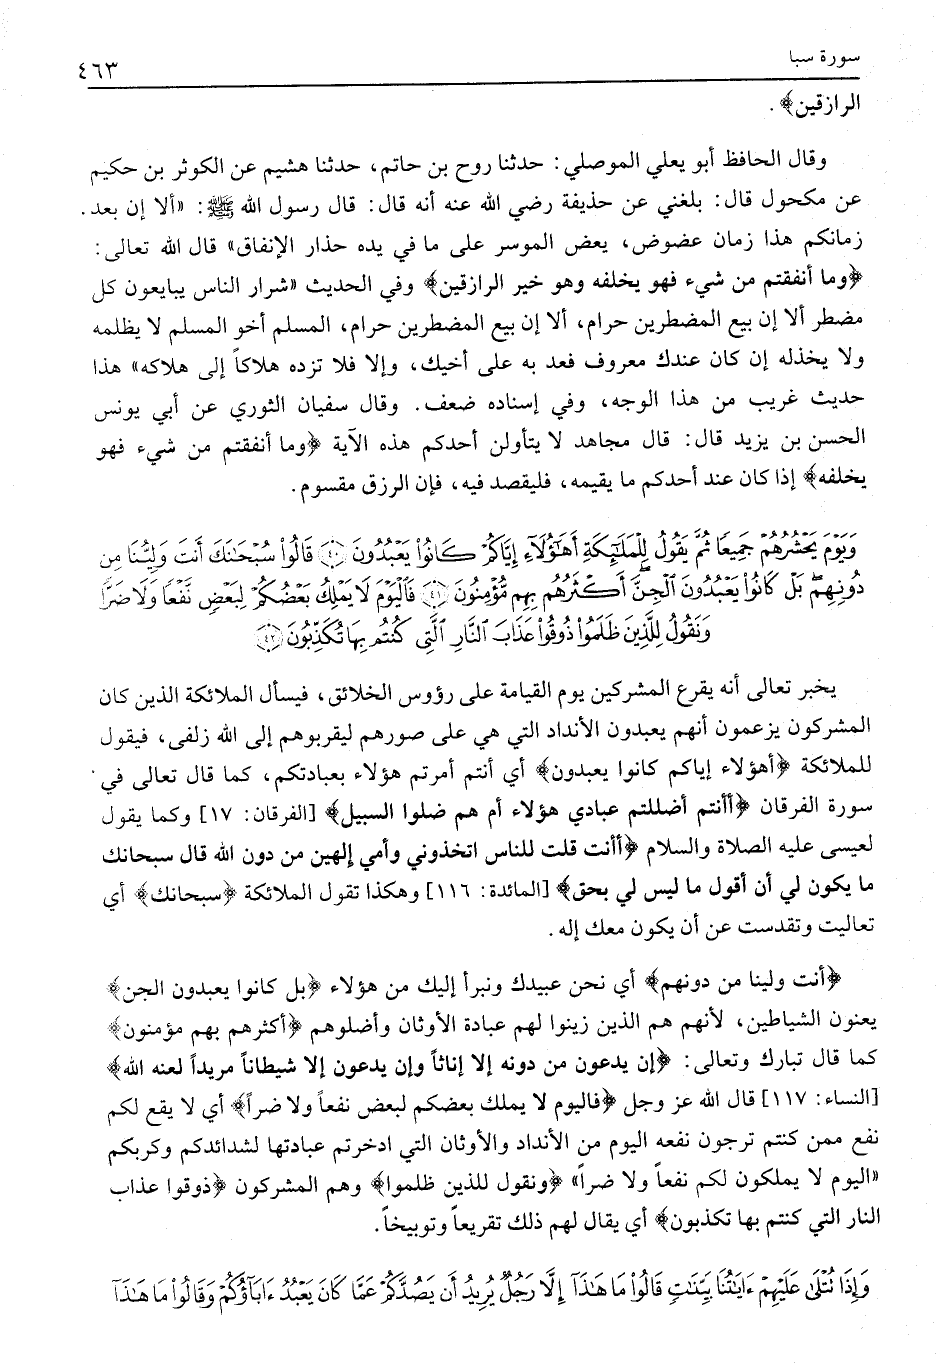 سورة سبا
٤٦٣
الرازقين﴾ .
وقال الحافظ أبو يعلي الموصلي: حدثنا روح بن حاتم، حدثنا هشيم عن الكوثر بن حكيم
عن مكحول قال: بلغني عن حذيفة رضي الله عنه أنه قال: قال رسول الله ﷺ: «ألا إن بعد.
زمانكم هذا زمان عضوض، يعض الموسر على ما في يده حذار الإنفاق» قال الله تعالى:
﴿وما أنفقتم من شيء فهو يخلفه وهو خير الرازقين﴾ وفي الحديث «شرار الناس يبايعون كل
مضطر ألا إن بيع المضطرين حرام، ألا إن بيع المضطرين حرام، المسلم أخو المسلم لا يظلمه
ولا يخذله إن كان عندك معروف فعد به على أخيك، وإلا فلا تزده هلاكاً إلى هلاكه» هذا
حديث غريب من هذا الوجه، وفي إسناده ضعف. وقال سفيان الثوري عن أبي يونس
الحسن بن يزيد قال: قال مجاهد لا يتأولن أحدكم هذه الآية ﴿وما أنفقتم من شيء فهو
يخلفه﴾ إذا كان عند أحدكم ما يقيمه، فليقصد فيه، فإن الرزق مقسوم.
وَيَوْمَ يَحْشُرُهُمْ جَمِيعًا ثُمَّ يَقُولُ لِلْمَلَٰٓئِكَةِ أَهَٰٓؤُلَآءِ إِيَّاكُمْ كَانُوا۟ يَعْبُدُونَ ﴿٤٠﴾ قَالُوا۟ سُبْحَٰنَكَ أَنتَ وَلِيُّنَا مِن
دُونِهِم ۖ بَلْ كَانُوا۟ يَعْبُدُونَ ٱلْجِنَّ ۖ أَكْثَرُهُم بِهِم مُّؤْمِنُونَ ﴿٤١﴾ فَٱلْيَوْمَ لَا يَمْلِكُ بَعْضُكُمْ لِبَعْضٍ نَّفْعًا وَلَا ضَرًّا
وَنَقُولُ لِلَّذِينَ ظَلَمُوا۟ ذُوقُوا۟ عَذَابَ ٱلنَّارِ ٱلَّتِى كُنتُم بِهَا تُكَذِّبُونَ ﴿٤٢﴾
يخبر تعالى أنه يقرع المشركين يوم القيامة على رؤوس الخلائق، فيسأل الملائكة الذين كان
المشركون يزعمون أنهم يعبدون الأنداد التي هي على صورهم ليقربوهم إلى الله زلفى، فيقول
للملائكة ﴿أهؤلاء إياكم كانوا يعبدون﴾ أي أنتم أمرتم هؤلاء بعبادتكم، كما قال تعالى في
سورة الفرقان ﴿أأنتم أضللتم عبادي هؤلاء أم هم ضلوا السبيل﴾ [الفرقان: ١٧] وكما يقول
لعيسى عليه الصلاة والسلام ﴿أأنت قلت للناس اتخذوني وأمي إلهين من دون الله قال سبحانك
ما يكون لي أن أقول ما ليس لي بحق﴾ [المائدة: ١١٦] وهكذا تقول الملائكة ﴿سبحانك﴾ أي
تعاليت وتقدست عن أن يكون معك إله.
﴿أنت ولينا من دونهم﴾ أي نحن عبيدك ونبرأ إليك من هؤلاء ﴿بل كانوا يعبدون الجن﴾
يعنون الشياطين، لأنهم هم الذين زينوا لهم عبادة الأوثان وأضلوهم ﴿أكثرهم بهم مؤمنون﴾
كما قال تبارك وتعالى: ﴿إن يدعون من دونه إلا إناثاً وإن يدعون إلا شيطاناً مريداً لعنه الله﴾
[النساء: ١١٧] قال الله عز وجل ﴿فاليوم لا يملك بعضكم لبعض نفعاً ولا ضراً﴾ أي لا يقع لكم
نفع ممن كنتم ترجون نفعه اليوم من الأنداد والأوثان التي ادخرتم عبادتها لشدائدكم وكربكم
«اليوم لا يملكون لكم نفعاً ولا ضراً» ﴿ونقول للذين ظلموا﴾ وهم المشركون ﴿ذوقوا عذاب
النار التي كنتم بها تكذبون﴾ أي يقال لهم ذلك تقريعاً وتوبيخاً.
وَإِذَا تُتْلَىٰ عَلَيْهِمْ ءَايَٰتُنَا بَيِّنَٰتٍ قَالُوا۟ مَا هَٰذَآ إِلَّا رَجُلٌ يُرِيدُ أَن يَصُدَّكُمْ عَمَّا كَانَ يَعْبُدُ ءَابَآؤُكُمْ وَقَالُوا۟ مَا هَٰذَآ